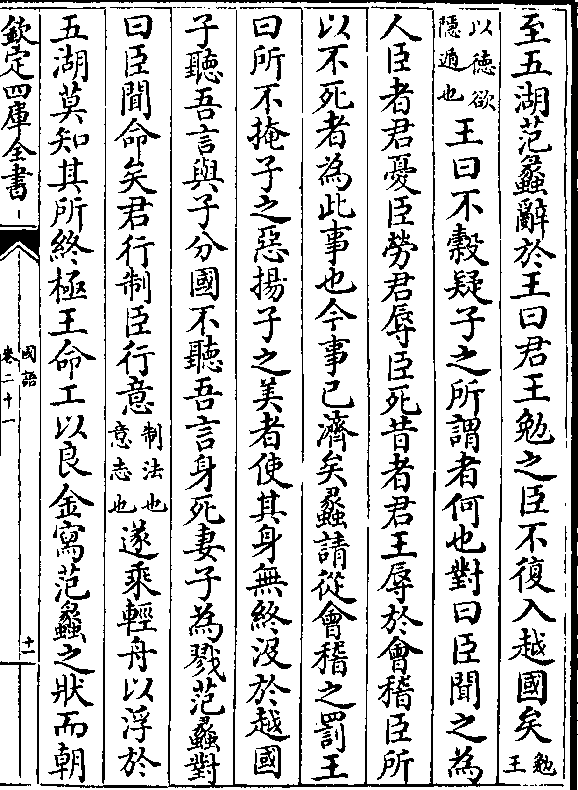 至五湖范蠡辭於王曰君王勉之臣不復入越國矣勉王
以德欲隱遁也王曰不穀疑子之所謂者何也對曰臣聞之為
人臣者君憂臣勞君辱臣死昔者君王辱於會稽臣所
以不死者為此事也今事已濟矣蠡請從會稽之罰王
曰所不掩子之惡揚子之美者使其身無終沒於越國
子聽吾言與子分國不聽吾言身死妻子為戮范蠡對
曰臣聞命矣君行制臣行意制法也意志也遂乗輕舟以浮於
五湖莫知其所終極王命工以良金寫范蠡之狀而朝
欽定四庫全書
國語
卷二十一
十一